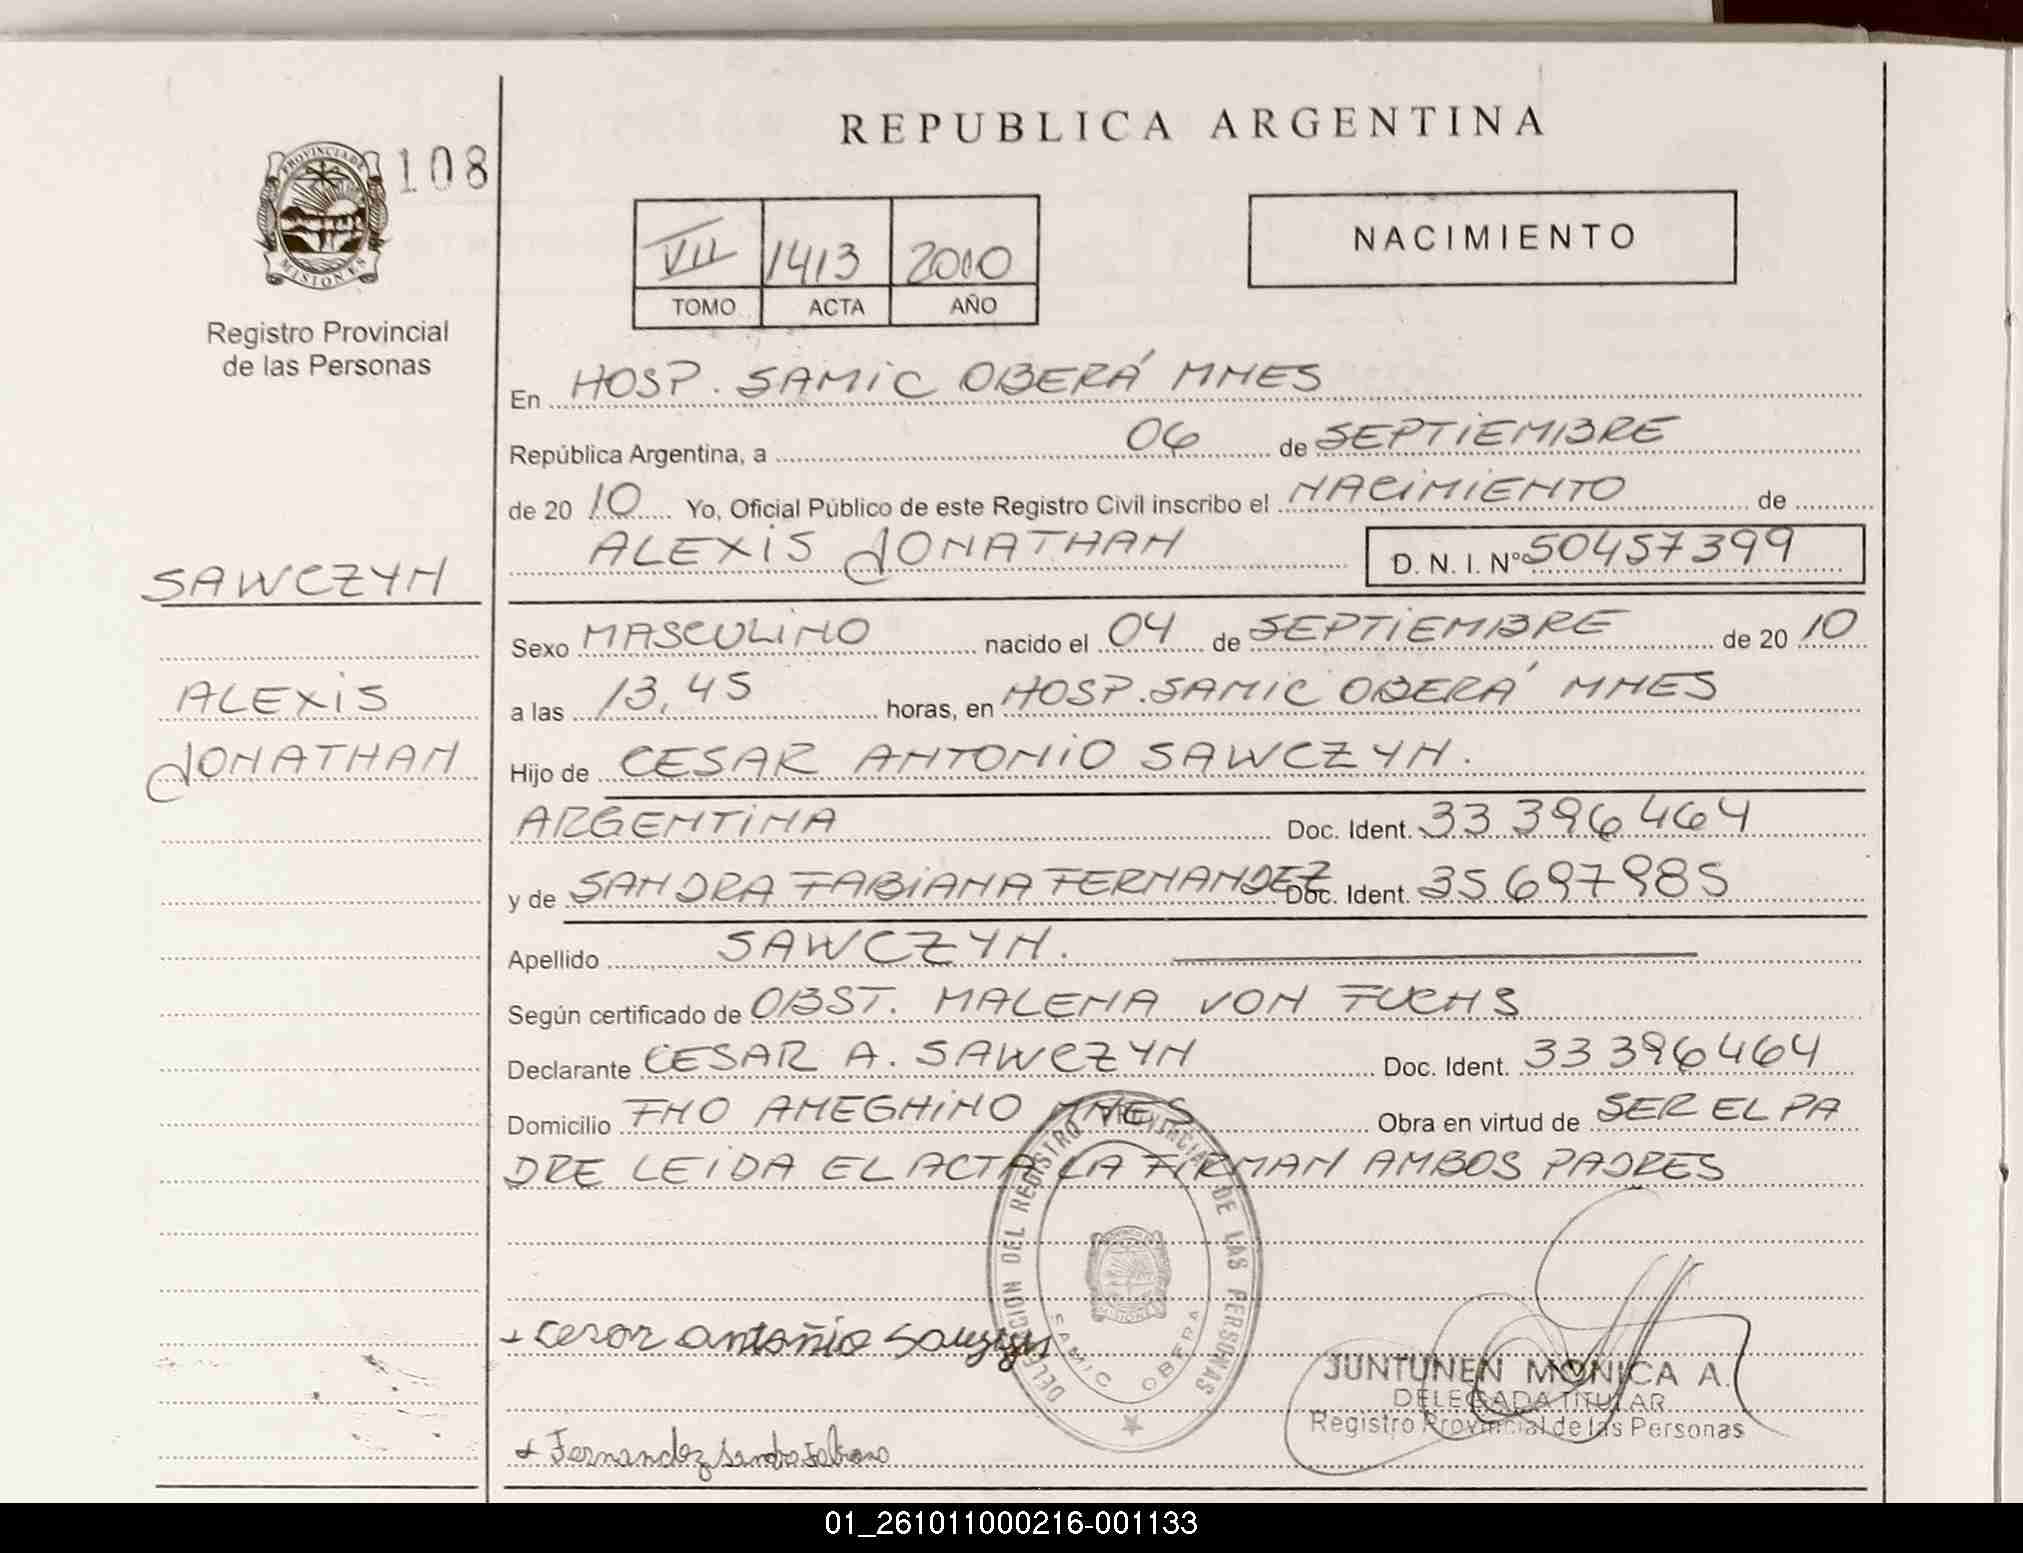 REPUBLICA ARGENTINA
PROVINCIA DE MISIONES
108
Registro Provincial
de las Personas
VII 1413 2010
TOMO ACTA AÑO
NACIMIENTO
En HOSP. SAMIC OBERÁ MNES
República Argentina, a 06 de SEPTIEMBRE
de 20 10 Yo, Oficial Público de este Registro Civil inscribo el NACIMIENTO de
ALEXIS JONATHAN D. N. I. Nº 50457399
SAWCZYN
ALEXIS
JONATHAN
Sexo MASCULINO nacido el 04 de SEPTIEMBRE de 20 10
a las 13,45 horas, en HOSP. SAMIC OBERÁ MNES
Hijo de CESAR ANTONIO SAWCZYN.
ARGENTINA Doc. Ident. 33 396 464
y de SANDRA FABIANA FERNANDEZ Doc. Ident. 35 697 985
Apellido SAWCZYN.
Según certificado de OBST. MALENA VON FUCHS
Declarante CESAR A. SAWCZYN Doc. Ident. 33 396 464
Domicilio FNO AMEGHINO MNES Obra en virtud de SER EL PA
DRE LEIDA EL ACTA LA FIRMAN AMBOS PADRES
DELEGACION DEL REGISTRO PROVINCIAL DE LAS PERSONAS
SAMIC OBERA
MISIONES
JUNTUNEN MONICA A.
DELEGADA TITULAR
Registro Provincial de las Personas
Fernandez Sandra Fabiana
01_261011000216-001133